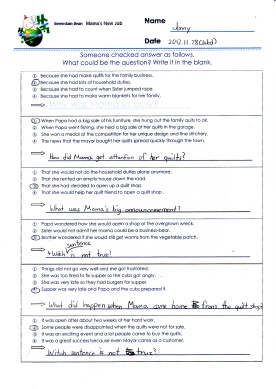 Berenstain Bears Mama's New Job
Name Jenny
Date 2012.11.28(Wed)
Someone checked answer as follows.
What could be the question? Write it in the blank.
① Because she had make quilts for the family business.
② Because she had lots of household duties.
③ Because she had to count when Sister jumped rope.
④ Because she had to make warm blankets for her family.
① When Papa had a big sale of his furniture, she hung out the family quilts to air.
② When Papa went fishing, she held a big sale of her quilts in the garage.
③ She won a medal at the competition for her unique design and fine stitchery.
④ The news that the mayor bought her quilts spread quickly through the town.
How did Mama get attention of her quilts?
① That she would not do the household duties alone anymore.
② That she rented an empty house down the road.
③ That she had decided to open up a quilt shop.
④ That she would help her quilt friend to open a quilt shop.
What was Mama's big announcement?
① Papa wondered how she would open a shop at the overgrown wreck.
② Sister would not admit her mama could be a business-bear.
③ Brother wondered if she would still get worms from the vegetable patch.
Witch sentence is not true?
① Things did not go very well and she got frustrated.
② She was too tired to fix supper so the cubs got angry.
③ She was very late so they had burgers for supper.
④ Supper was very late and Papa and the cubs prepared it.
What did happen when Mama come home from the quilt shop?
① It was open after about two weeks of her hard work.
② Some people were disappointed when the quilts were not for sale.
③ It was an exciting event and a lot people came to buy the quilts.
④ It was a great success because even Mayor came as a customer.
Witch sentence is not true?